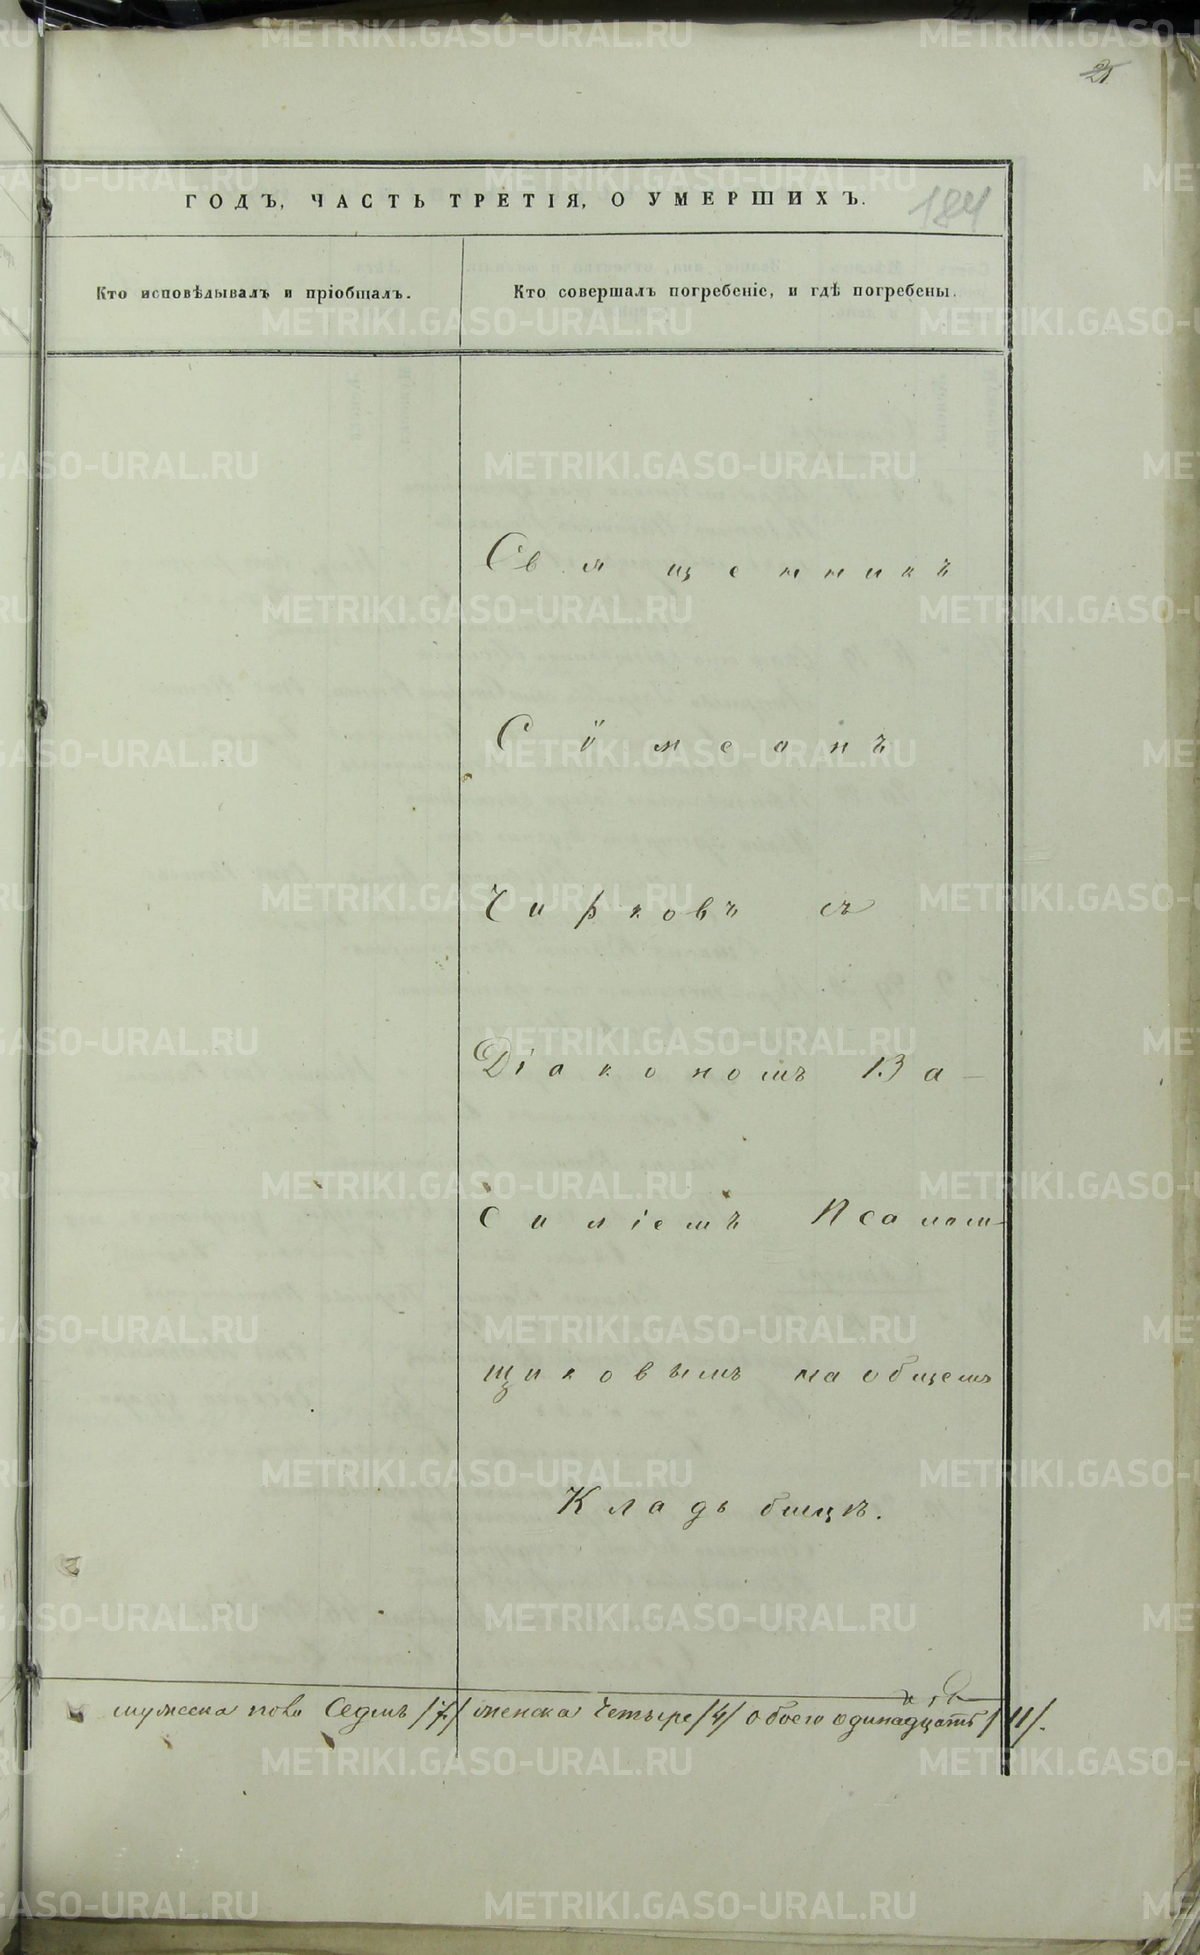 25
ГОДЪ, ЧАСТЬ ТРЕТІЯ, О УМЕРШИХЪ.
184
Кто исповѣдывалъ и пріобщалъ.
Кто совершалъ погребеніе, и гдѣ погребены.
Священникъ
Сѵмеонъ
Чирковъ съ
Діакономъ Ва-
силіемъ
щиковымъ на общемъ
Кладьбищѣ.
мужеска пола Седмъ /7/ женска Четыре /4/ обоего одинадцать /11/.
METRIKI.GASO-URAL.RU